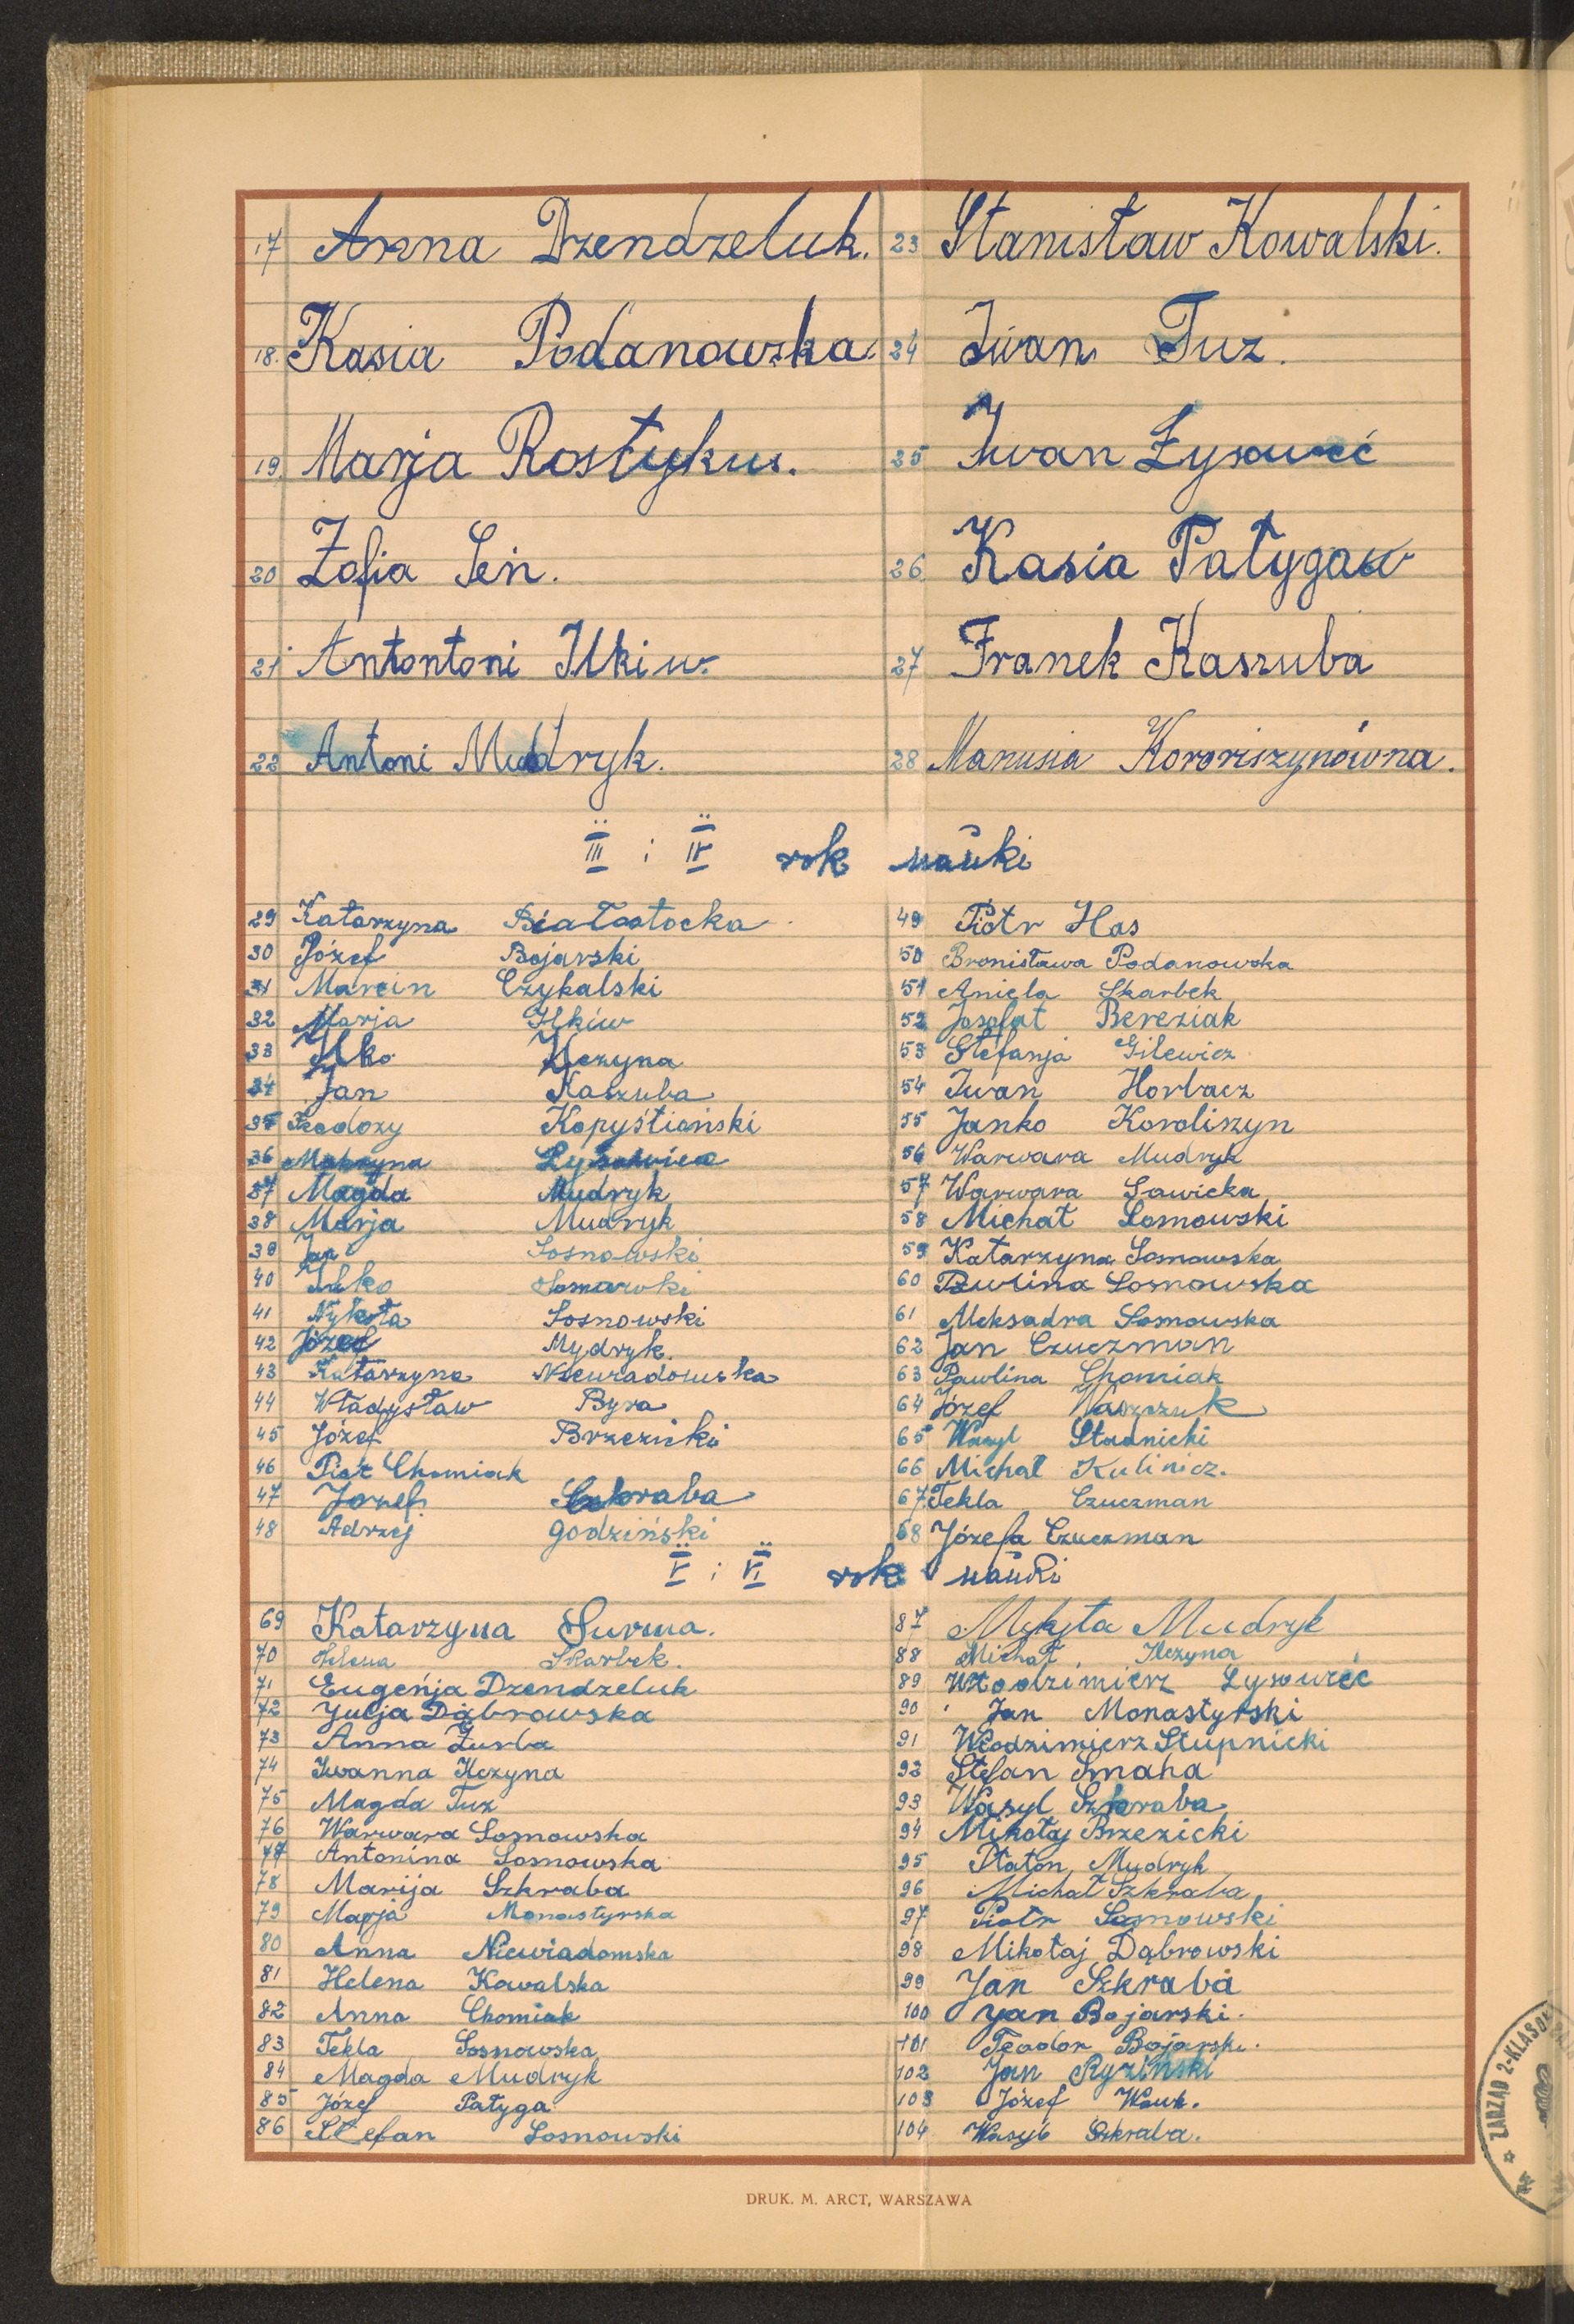 17 Anna Dzendzeluk.
18. Kasia Podanowska.
19. Marja Rostykus.
20 Zofia Seń.
21 Antontoni Ilkiw.
22 Antoni Mudryk.
23 Stanisław Kowalski.
24 Iwan Tuz.
25 Iwan Łysowieć
26. Kasia Patygaw
27 Franek Kaszuba
28 Marusia Kororiszynówna.
III i IV rok nauki
29 Katarzyna Białostocka
30 Józef Bojarski
31 Marcin Czykalski
32 Marja Ilkiw
33 Ilko Ilczyna
34 Jan Kaszuba
35 Teodozy Kopyśtiański
36 Makryna
37 Magda Mudryk
38 Marja Mudryk
39 Jan Sosnowski
40 Ilko
41 Nykyta Sosnowski
42 Józef Mydryk.
43 Katarzyna Niewiadomska
44 Władysław Byra
45 Józef Brzezicki
46 Piotr Chomiak
47 Jozef Szkraba
48 Adrzej Godziński
49 Piotr Has
50 Bronisława Podanowska
51 Aniela Skarbek
52 Josafat Bereziak
53 Stefanja Gilewicz
54 Iwan Horbacz
55 Janko Koroliszyn
56 Warwara Mudryk
57 Warwara Sawicka
58 Michał Sosnowski
59 Katarzyna Sosnowska
60 Pawlina Sosnowska
61 Aleksadra Sosnowska
62 Jan Czuczman
63 Pawlina Chomiak
64 Józef Waszczuk
65 Wasyl Stadnicki
66 Michał Kulinicz.
67 Tekla Czuczman
68 Józefa Czuczman
V i VI rok nauki
69 Katarzyna Surma.
70 Helena Skarbek.
71 Eugenja Dzendzeluk
72 Julja Dąbrowska
73 Anna Żurba
74 Iwanna Ilczyna
75 Magda Tuz
76 Warwara Sosnowska
77 Antonina Sosnowska
78 Marija Szkraba
79 Marja Monastyrska
80 Anna Niewiadomska
81 Helena Kowalska
82 Anna Chomiak
83 Tekla Sosnowska
84 Magda Mudryk
85 Józef Patyga
86 Stefan Sosnowski
87 Mykyta Mudryk
88 Michał Ilczyna
89 Włodzimierz Łysowieć
90 Jan Monastyrski
91 Włodzimierz Stupnicki
92 Stefan Smaha
93 Wasyl Szkraba
94 Mikołaj Brzezicki
95 Płaton Mudryk
96 Michał Szkraba
97 Piotr Sosnowski
98 Mikołaj Dąbrowski
99 Jan Szkraba
100 Jan Bojarski.
101 Teodor Bojarski.
102 Jan Ryziński
103 Józef
104 Wasyl Szkraba.
DRUK. M. ARCT, WARSZAWA
ZARZĄD 2-KLASOW